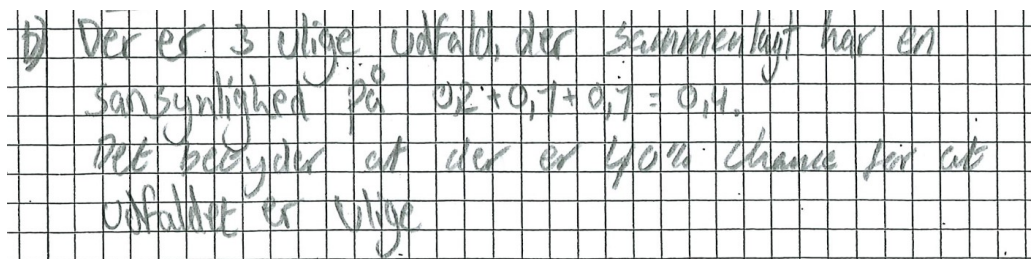 b) Der er 3 ulige udfald, der sammenlagt har en
sansynlighed på 0,2 + 0,1 + 0,1 = 0,4.
Det betyder at der er 40% chance for at
udfaldet er ulige